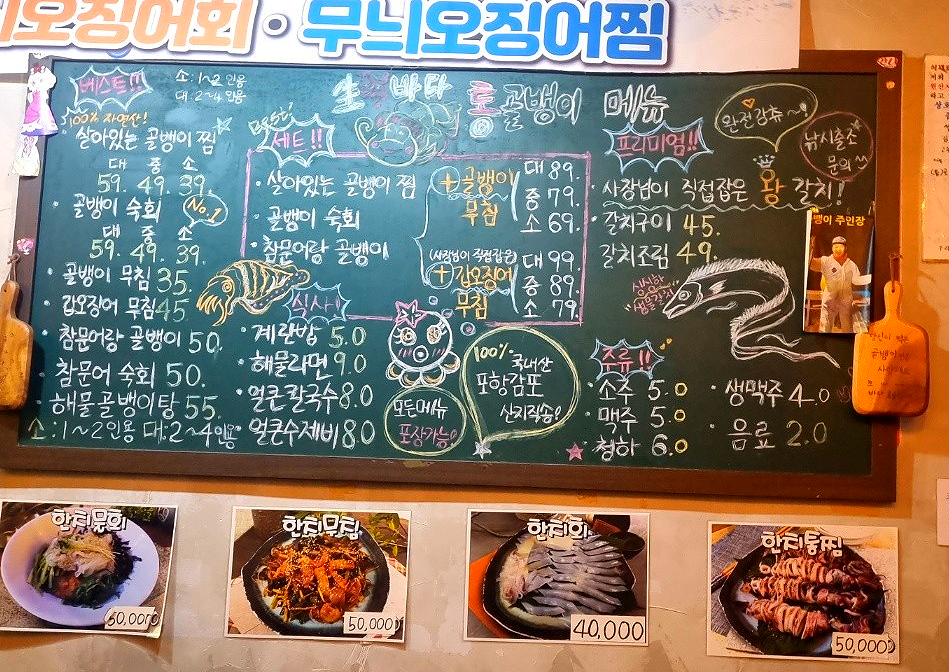 늬오징어회 · 무늬오징어찜
베스트!!
소:1~2인용
대:2~4인용
100% 자연산!
살아있는 골뱅이 찜
대 중 소
59. 49. 39.
골뱅이 숙회 No.1
대 중 소
59. 49. 39.
골뱅이 무침 35.
갑오징어 무침 45
참문어랑 골뱅이 50.
참문어 숙회 50.
해물골뱅이탕 55.
소:1~2인용 대:2~4인용
바다 통골뱅이 메뉴
세트!!
살아있는 골뱅이 찜
골뱅이 숙회
참문어랑 골뱅이
+골뱅이 무침
대 89.
중 79.
소 69.
(사장님이 직접잡은)
+갑오징어 무침
대 99.
중 89.
소 79.
식사!
계란밥 5.0
해물라면 9.0
얼큰칼국수 8.0
얼큰수제비 8.0
모든메뉴
포장가능!
100% 국내산
포항감포
산지직송!
프리미엄!!
완전강추~!
낚시출조
문의^^
사장님이 직접잡은 왕 갈치!
갈치구이 45.
갈치조림 49.
싱싱한
생물갈치
주류!!
소주 5.0
맥주 5.0
청하 6.0
생맥주 4.0
음료 2.0
뱅이 주인장
한치물회
한치무침
50,000
한치회
40,000
한치통찜
50,000